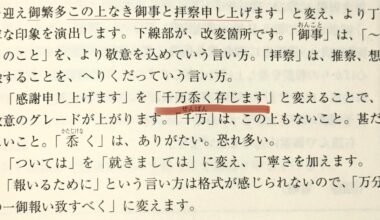 迎え御繁多この上なき御事と拝察申し上げます」と変え、より丁
な印象を演出します。下線部が、改変箇所です。「御事」は、「〜
おんこと
のこと」を、より敬意を込めていう言い方。「拝察」は、推察、想
することを、へりくだっていう言い方。
「感謝申し上げます」を「千万忝く存じます」と変えることで、
せんばん
意のグレードが上がります。「千万」は、この上もないこと。甚だ
かたじけな
いこと。「忝く」は、ありがたい。恐れ多い。
「ついては」を「就きましては」に変え、丁寧さを加えます。
「報いるために」という言い方は格式が感じられないので、「万分
の一御報い致すべく」に変えます。